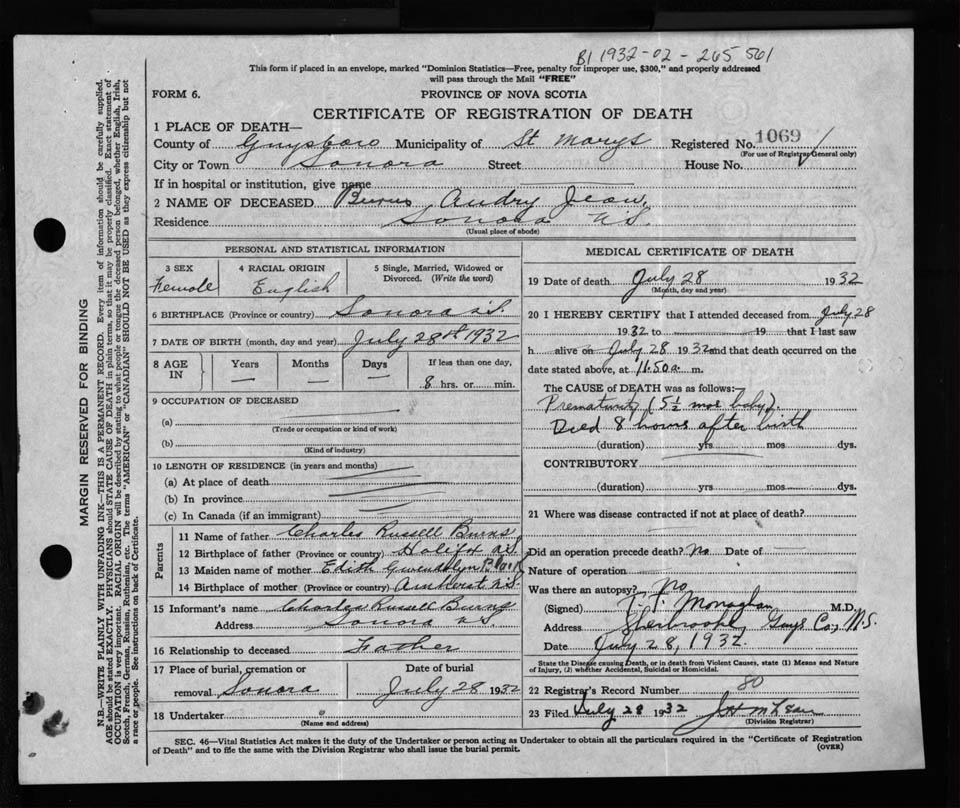 B1 1932-02-265 561
This form if placed in an envelope, marked "Dominion Statistics—Free, penalty for improper use, $300," and properly addressed
will pass through the Mail "FREE"
FORM 6.
PROVINCE OF NOVA SCOTIA
CERTIFICATE OF REGISTRATION OF DEATH
1 PLACE OF DEATH—
County of Guysboro Municipality of St Marys Registered No. 1069
(For use of Registrar General only)
City or Town Sonora Street House No.
If in hospital or institution, give name
2 NAME OF DECEASED Burns Audry Jean
Residence Sonora N.S.
(Usual place of abode)
PERSONAL AND STATISTICAL INFORMATION
3 SEX Female
4 RACIAL ORIGIN English
5 Single, Married, Widowed or Divorced. (Write the word)
6 BIRTHPLACE (Province or country) Sonora N.S.
7 DATE OF BIRTH (month, day and year) July 28th 1932
8 AGE IN Years — Months — Days — If less than one day, 8 hrs. or min.
9 OCCUPATION OF DECEASED
(a)
(Trade or occupation or kind of work)
(b)
(Kind of industry)
10 LENGTH OF RESIDENCE (in years and months)
(a) At place of death
(b) In province
(c) In Canada (if an immigrant)
Parents
11 Name of father Charles Russell Burns
12 Birthplace of father (Province or country) Halifax N.S.
13 Maiden name of mother Edith Gwendolyn
14 Birthplace of mother (Province or country) Amherst N.S.
15 Informant's name Charles Russell Burns
Address Sonora N.S.
16 Relationship to deceased Father
17 Place of burial, cremation or removal Sonora
Date of burial July 28 1932
18 Undertaker
(Name and address)
MEDICAL CERTIFICATE OF DEATH
19 Date of death July 28 1932
(Month, day and year)
20 I HEREBY CERTIFY that I attended deceased from July 28
1932 to 19 that I last saw
h alive on July 28 1932 and that death occurred on
date stated above, at 11.50 a. m.
The CAUSE of DEATH was as follows:—
Prematurity (5½ mos baby).
Died 8 hours after birth
(duration) yrs mos dys.
CONTRIBUTORY
(duration) yrs mos dys.
21 Where was disease contracted if not at place of death?
Did an operation precede death? No Date of —
Nature of operation
Was there an autopsy? No
(Signed) Monaghan M.D.
Address Sherbrooke, Guys Co., N.S.
Date July 28, 1932.
State the Disease causing Death, or in death from Violent Causes, state (1) Means and Nature
of Injury, (2) whether Accidental, Suicidal or Homicidal.
22 Registrar's Record Number 80
23 Filed July 28 1932
(Division Registrar)
SEC. 46—Vital Statistics Act makes it the duty of the Undertaker or person acting as Undertaker to obtain all the particulars required in the "Certificate of Registration
of Death" and to file the same with the Division Registrar who shall issue the burial permit.
(OVER)
MARGIN RESERVED FOR BINDING
N.B.—WRITE PLAINLY WITH UNFADING INK—THIS IS A PERMANENT RECORD. Every item of information should be carefully supplied.
AGE should be stated EXACTLY. PHYSICIANS should STATE CAUSE OF DEATH in plain terms, so that it may be properly classified. Exact statement of
OCCUPATION is very important. RACIAL ORIGIN will be described by stating to what people or tongue the deceased person belonged, whether English, Irish,
Scotch, French, German, Russian, Ruthenian, etc. The terms "AMERICAN" or "CANADIAN" SHOULD NOT BE USED as they express citizenship but not
a race or people. See instructions on back of Certificate.